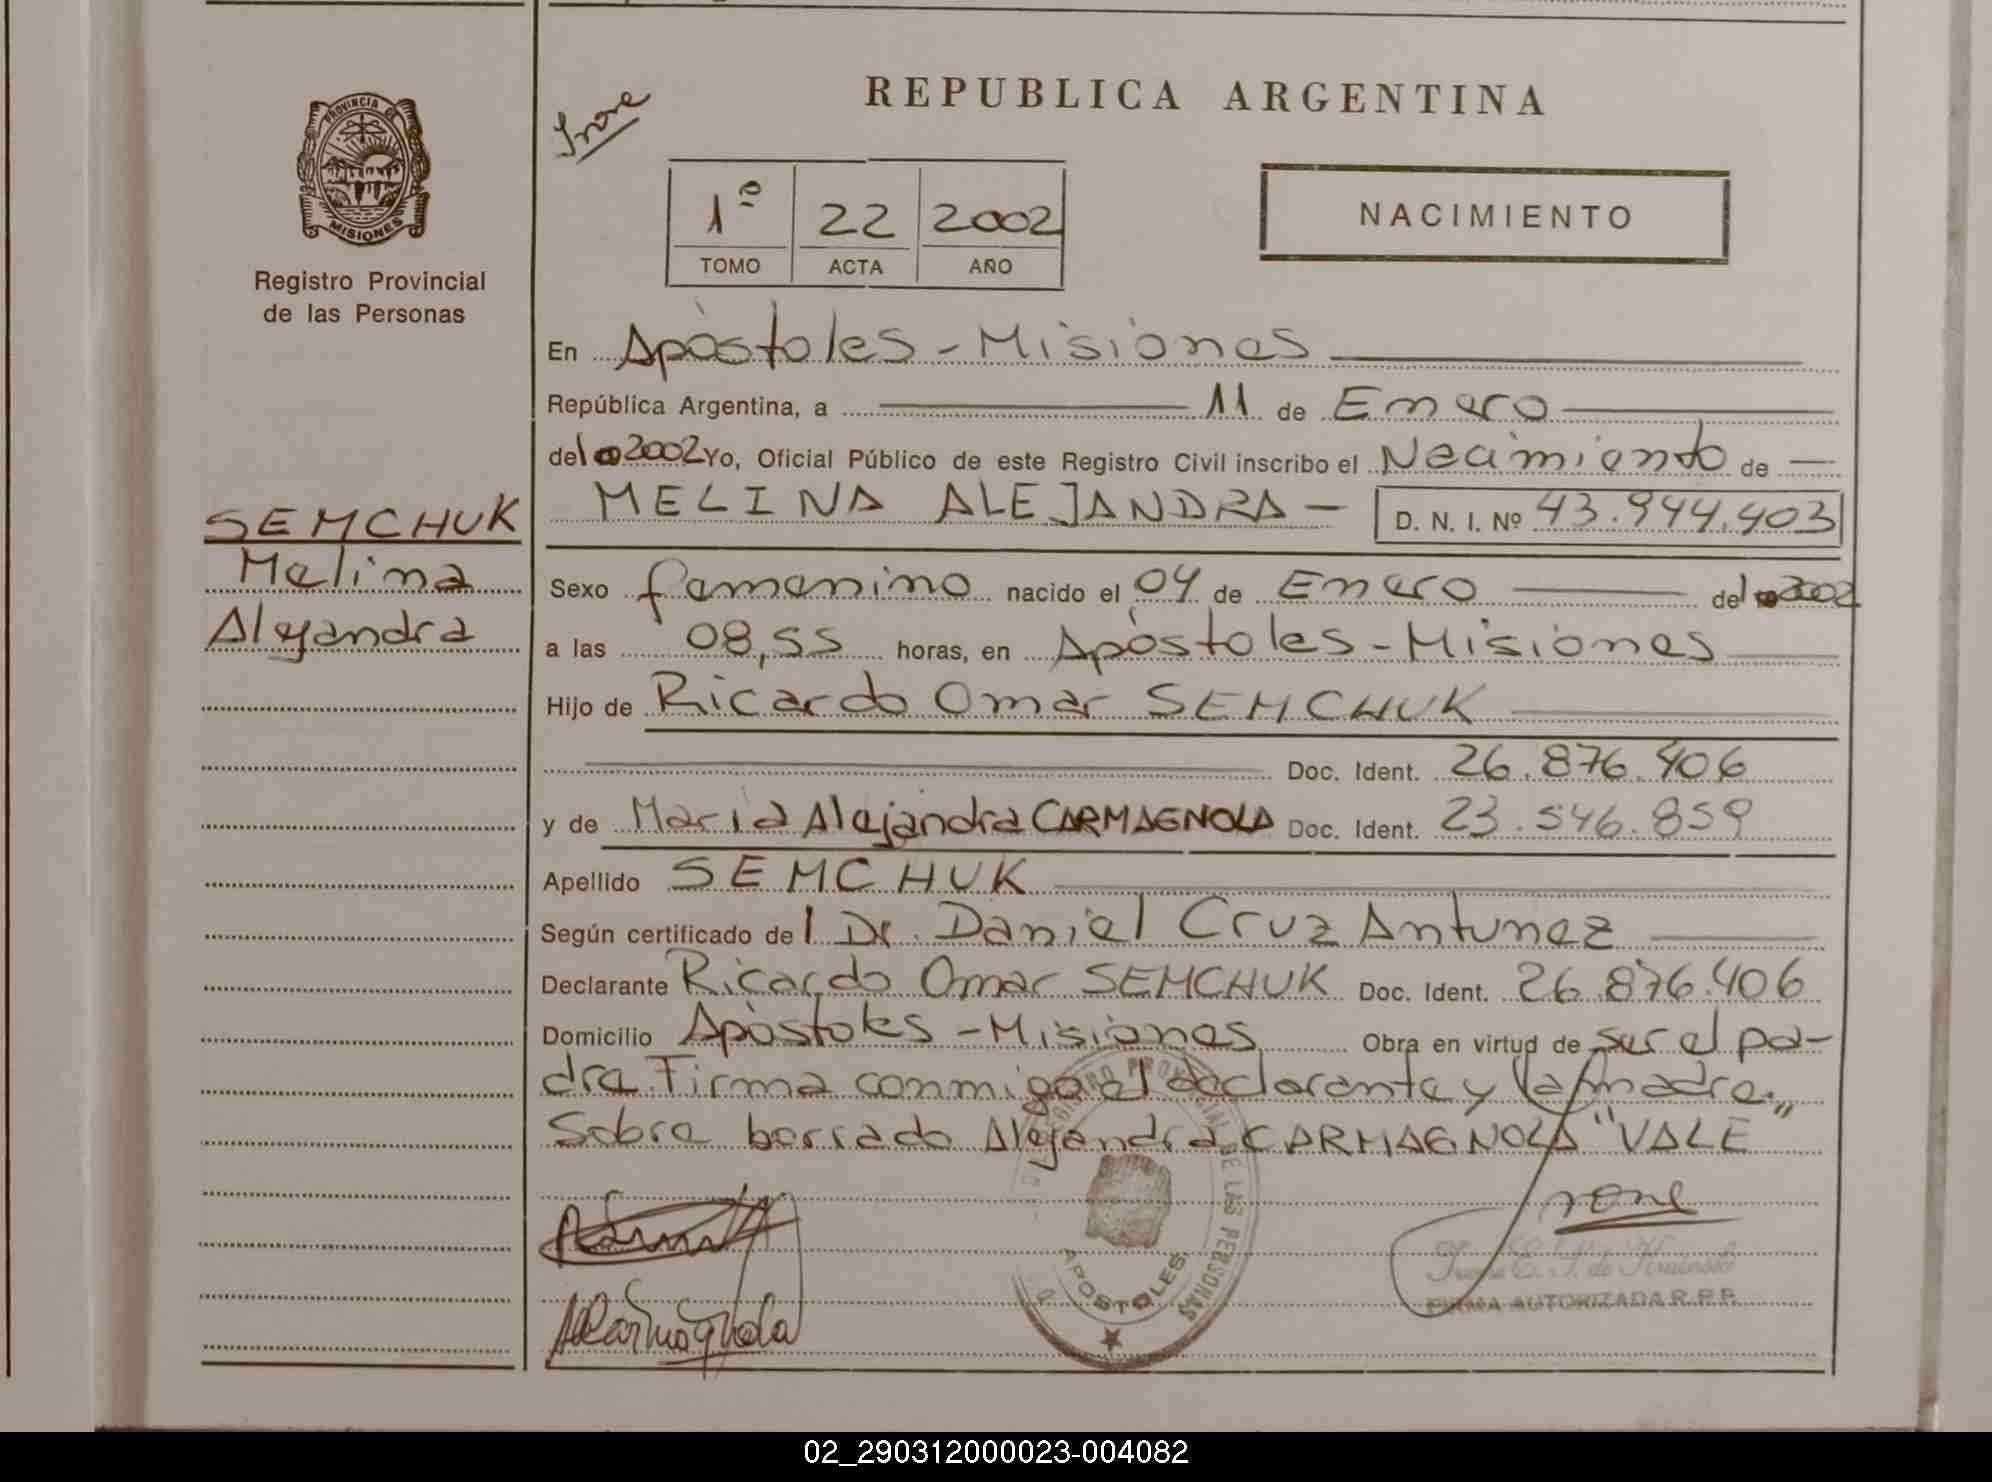 REPUBLICA ARGENTINA
PROVINCIA DE
MISIONES
Registro Provincial
de las Personas
Irone
1º 22 2002
TOMO ACTA AÑO
NACIMIENTO
En Apóstoles - Misiones
República Argentina, a 11 de Enero
del 2002 Yo, Oficial Público de este Registro Civil inscribo el Nacimiento de
MELINA ALEJANDRA - D. N. I. Nº 43.944.403
SEMCHUK
Melina
Alejandra
Sexo femenino nacido el 04 de Enero del 2002
a las 08,55 horas, en Apóstoles - Misiones
Hijo de Ricardo Omar SEMCHUK
Doc. Ident. 26.876.406
y de María Alejandra CARMAGNOLA Doc. Ident. 23.546.859
Apellido SEMCHUK
Según certificado del Dr. Daniel Cruz Antunez
Declarante Ricardo Omar SEMCHUK Doc. Ident. 26.876.406
Domicilio Apóstoles - Misiones Obra en virtud de ser el pa-
dre. Firma conmigo el declarante y la madre.
Sobre borrado Alejandra CARMAGNOLA "VALE"
REGISTRO PROVINCIAL DE LAS PERSONAS
APOSTOLES
ACarmagnola
Irone
FIRMA AUTORIZADA R.P.P.
02_290312000023-004082